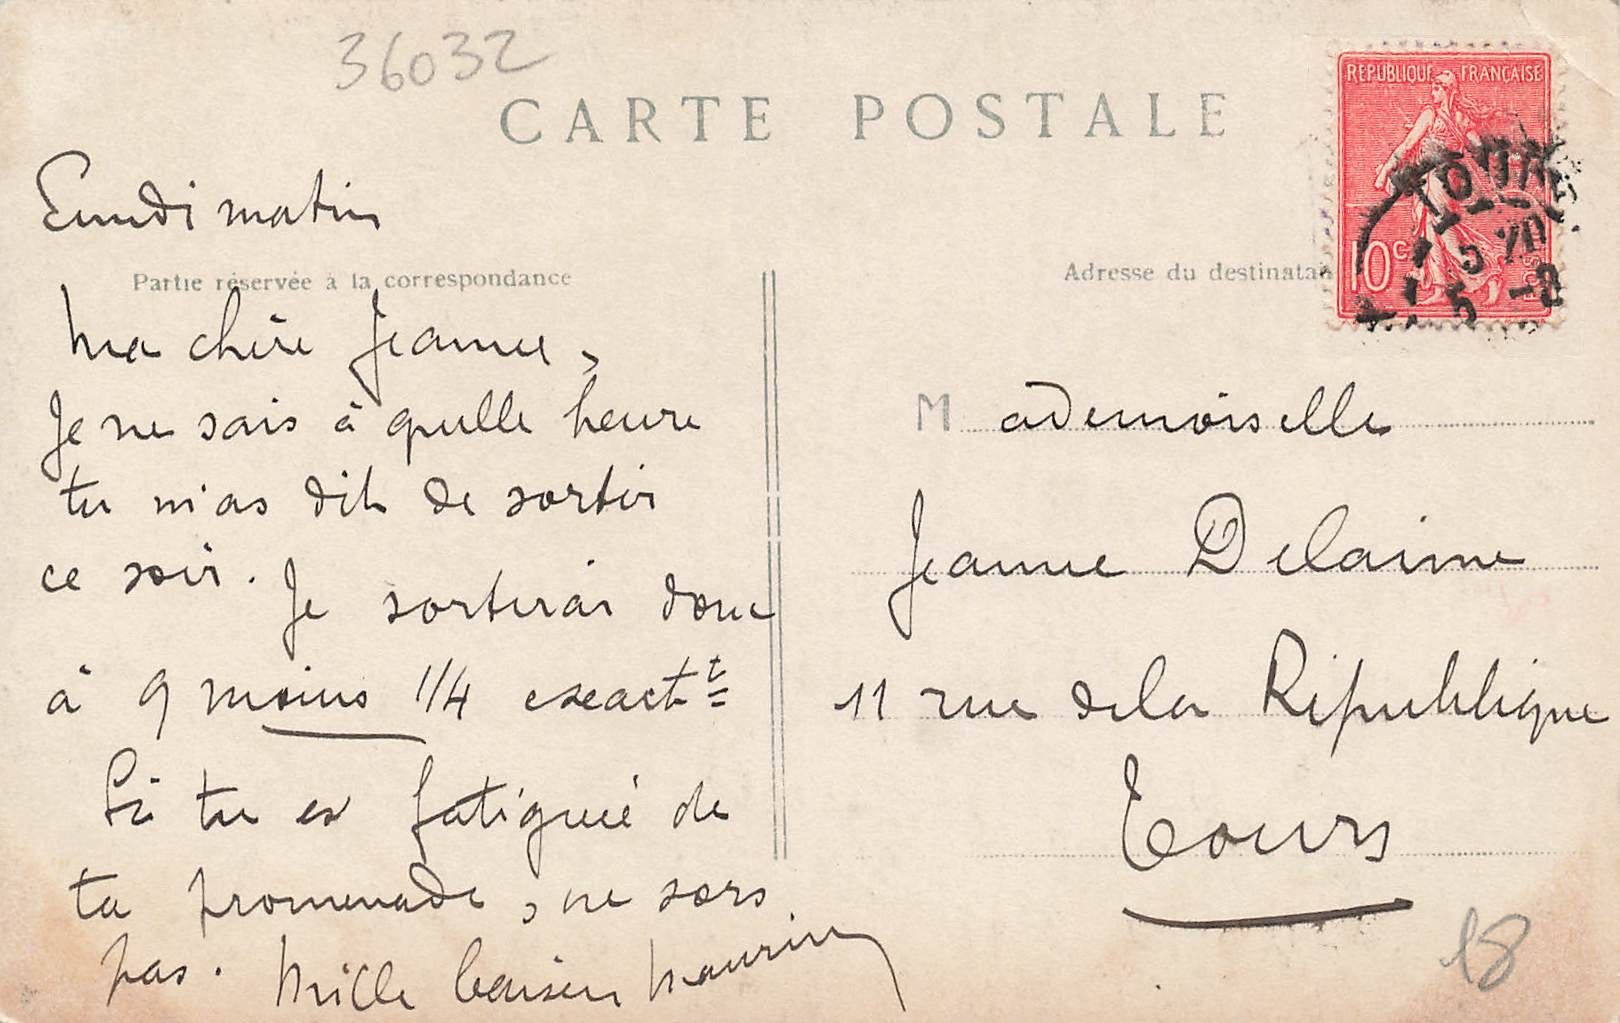 36032
CARTE POSTALE
REPUBLIQUE FRANÇAISE
10c
TOURS
5 -2
Lundi matin
Partie réservée à la correspondance
Ma chère Jeanne,
Je ne sais à quelle heure
tu m'as dit de sortir
ce soir. Je sortirai donc
à 9 moins 1/4 exactt
Si tu es fatiguée de
ta promenade, ne sors
pas. Mille baisers Maurice
Adresse du destinatai
Mademoiselle
Jeanne Delaime
11 rue de la République
Tours
18